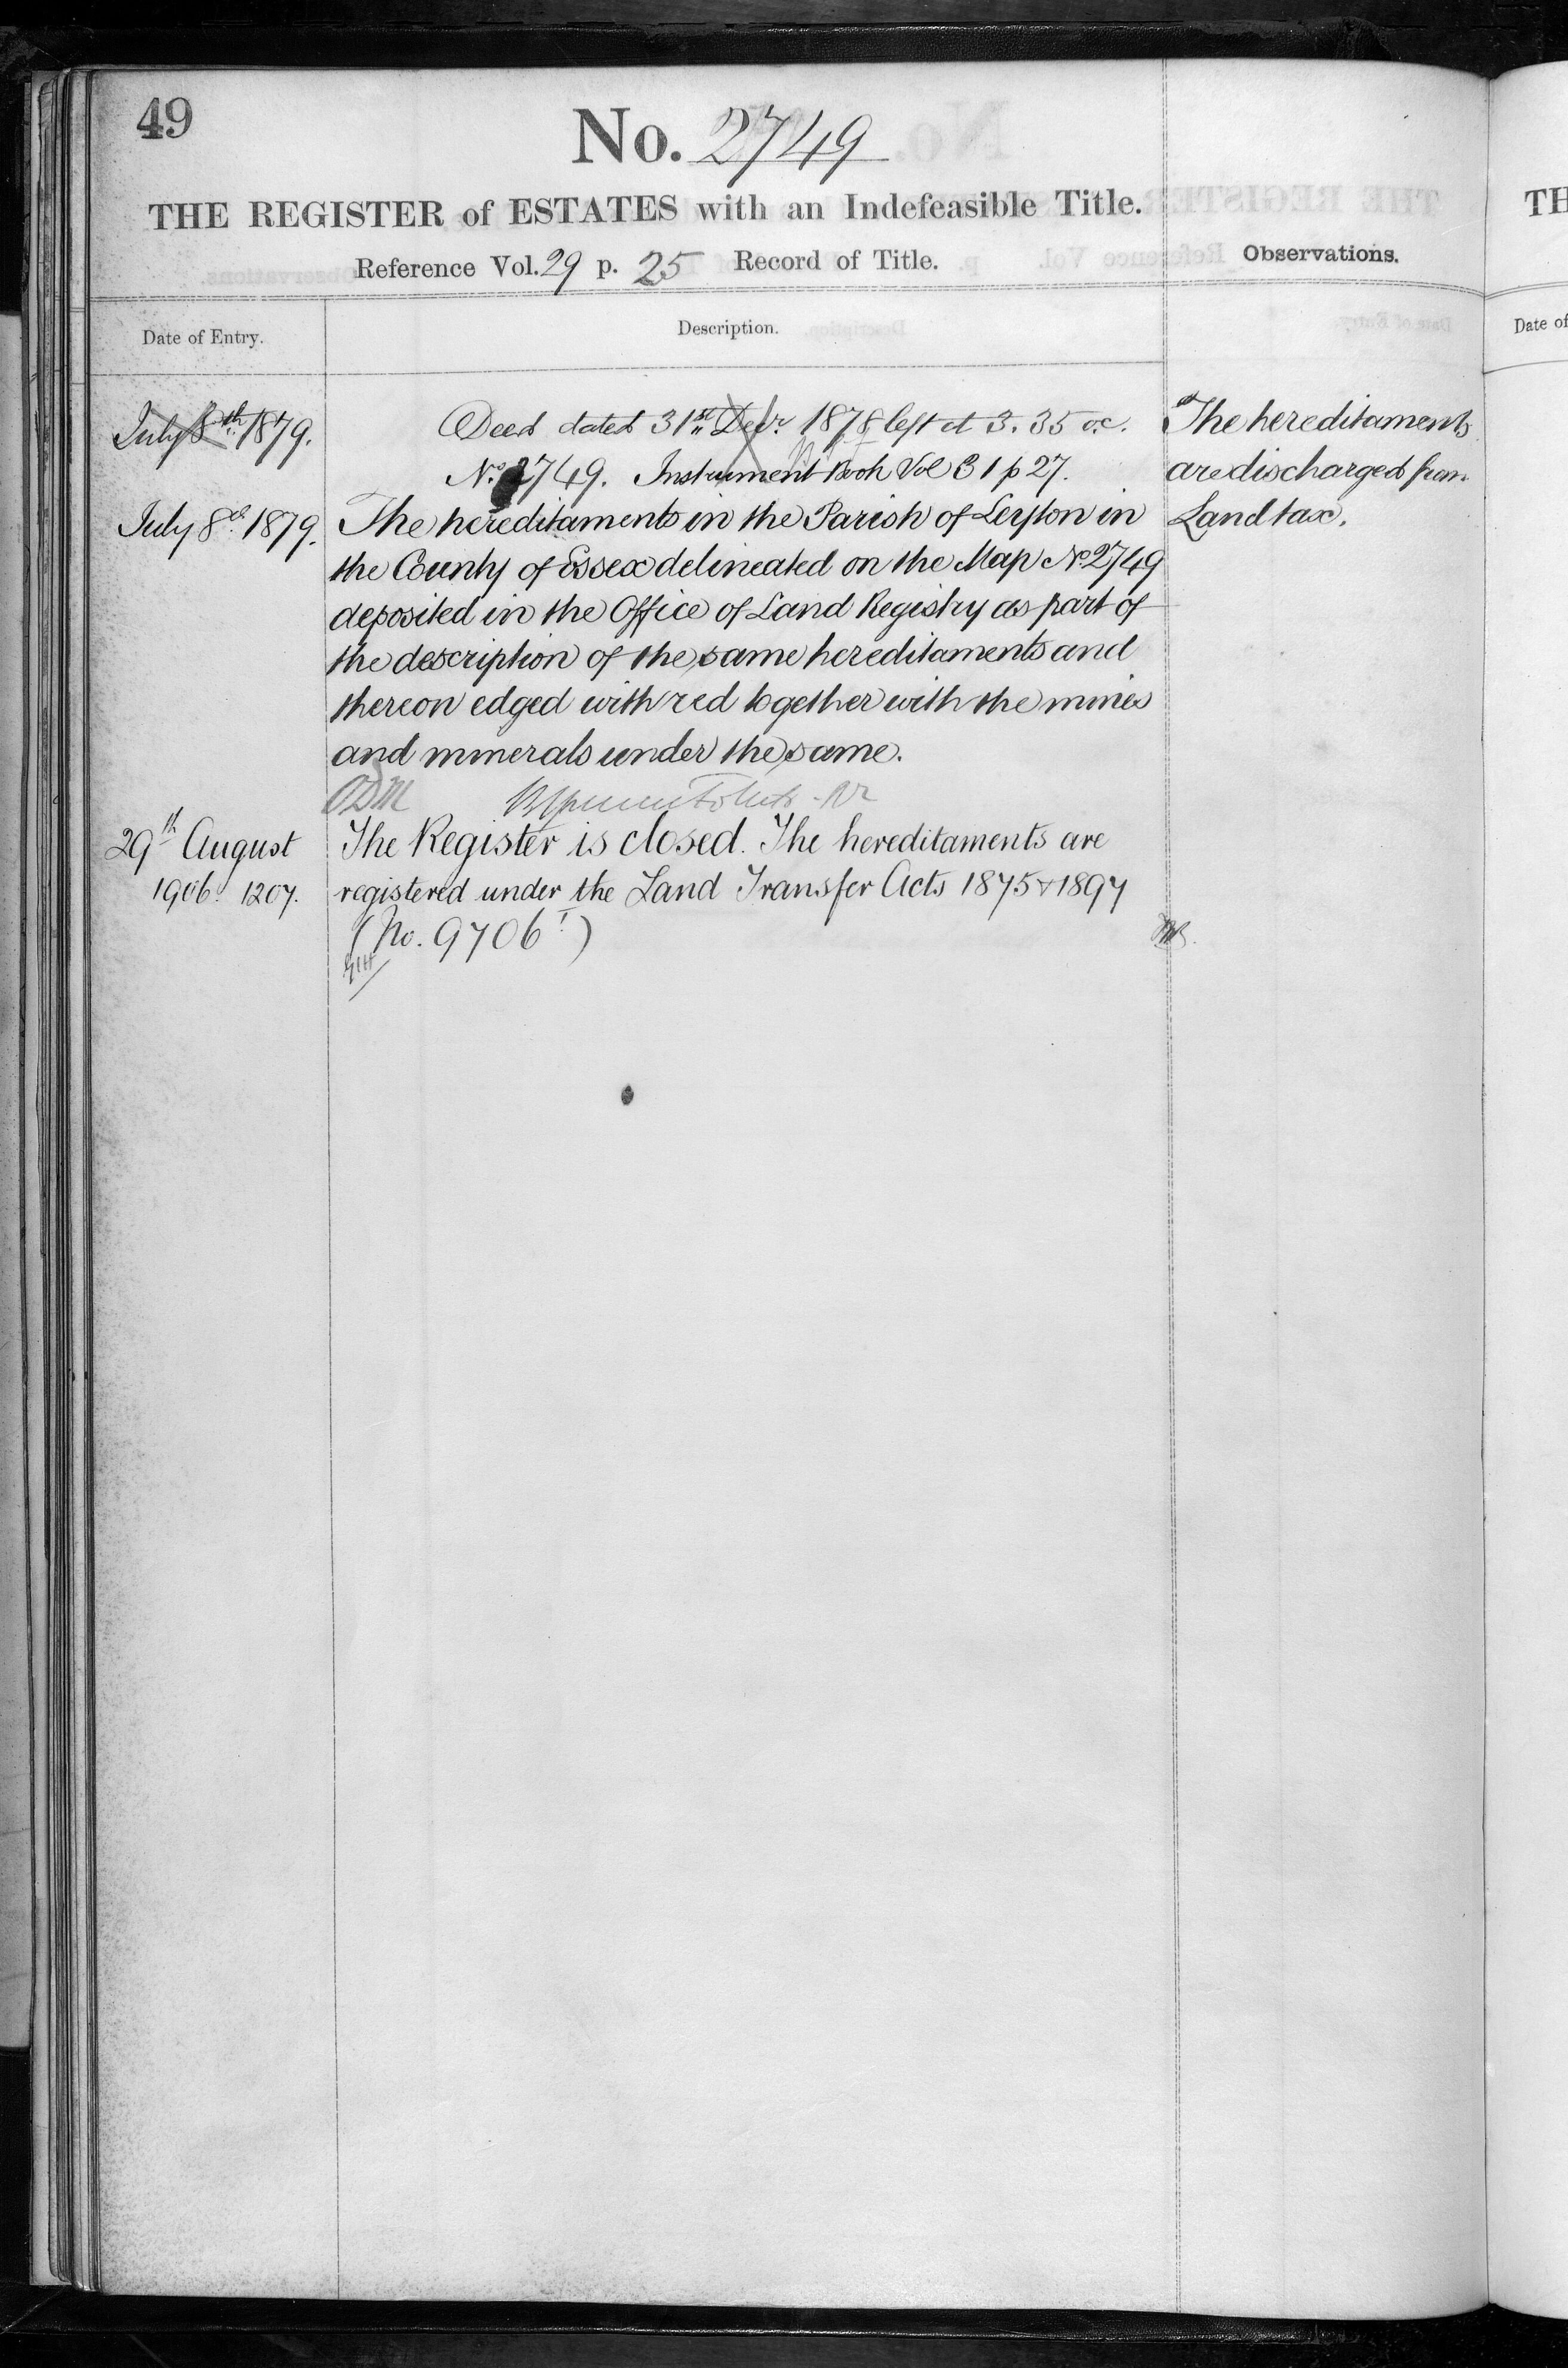 49
No. 2749
THE REGISTER of ESTATES with an Indefeasible Title.
Reference Vol. 29 p. 25 Record of Title.
Observations.
Date of Entry.
Description.
July 8th 1879.
Deed dated 31st Decr. 1878 left at 3.35 oc.
No. 2749. Instrument Book Vol 31 p 27.
July 8th 1879.
The hereditaments in the Parish of Leyton in
the County of Essex delineated on the Map No. 2749
deposited in the Office of Land Registry as part of
the description of the same hereditaments and
thereon edged with red together with the mines
and minerals under the same.
29th August
1906. 1207.
The Register is closed. The hereditaments are
registered under the Land Transfer Acts 1875 & 1897
(No. 9706)
The hereditaments
are discharged from
Land tax.
TH
Date of